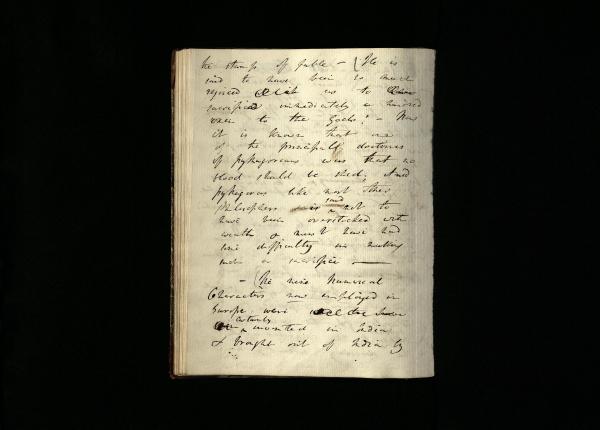 the stamp of fable - (He is
said to have been so much
rejoiced at it as to
sacrifice immediately a hundred
oxen to the Gods! - Now
it is known that one
of the principall doctrines
of pythagoreans was that no
blood should be shed; And
pythagoras like most other
Philosophers is said not to
have been overstocked with
wealth & must have had
some difficulty in making
such a sacrifice —
- (The nine Numerical
Characters now employed in
Europe were
certainly invented in India
& brought out of India by